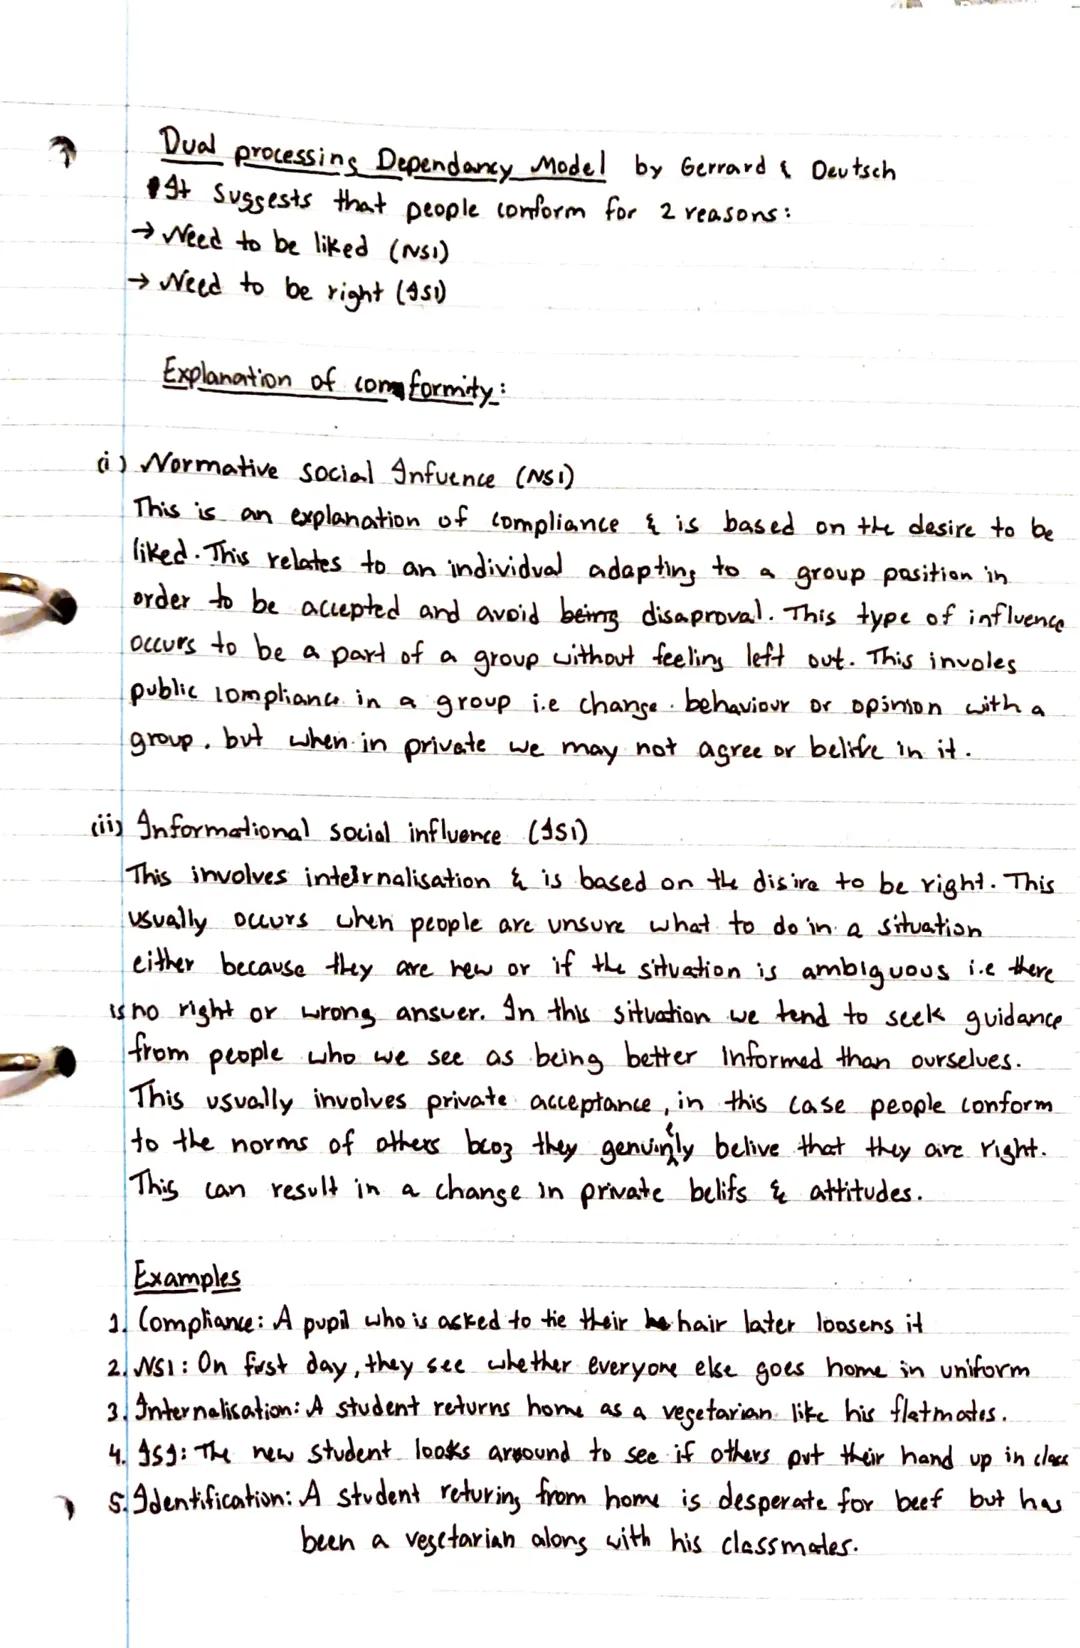 Dual processing Dependancy Model by Gerrard & Deutsch
It Suggests that people conform for 2 reasons:
→ Need to be liked (NSI)
→ Need to be right (ISI)
Explanation of comformity:
(i) Normative social Infuence (NSI)
This is an explanation of compliance & is based on the desire to be
liked. This relates to an individual adapting to a group position in
order to be accepted and avoid being disaproval. This type of influence
occurs to be a part of a group without feeling left out. This involes
public compliance in a group i.e change behaviour or opinion with a
group, but when in private we may not agree or belive in it.
(ii) Informational social influence (ISI)
This involves internalisation & is based on the disire to be right. This
usually occurs when people are unsure what to do in a situation
either because they are new or if the situation is ambiguous i.e there
is no right or wrong answer. In this situation we tend to seek guidance
from people who we see as being better informed than ourselves.
This usually involves private acceptance, in this case people conform
to the norms of others bcoz they genuinly belive that they are right.
This can result in a change in private belifs & attitudes.
Examples
1. Compliance: A pupil who is asked to tie their hair later loosens it
2. NSI: On first day, they see whether everyone else goes home in uniform
3. Internalisation: A student returns home as a vegetarian like his flatmates.
4. ISI: The new student looks around to see if others put their hand up in class
5. Identification: A student returing from home is desperate for beef but has
been a vegetarian along with his classmates.